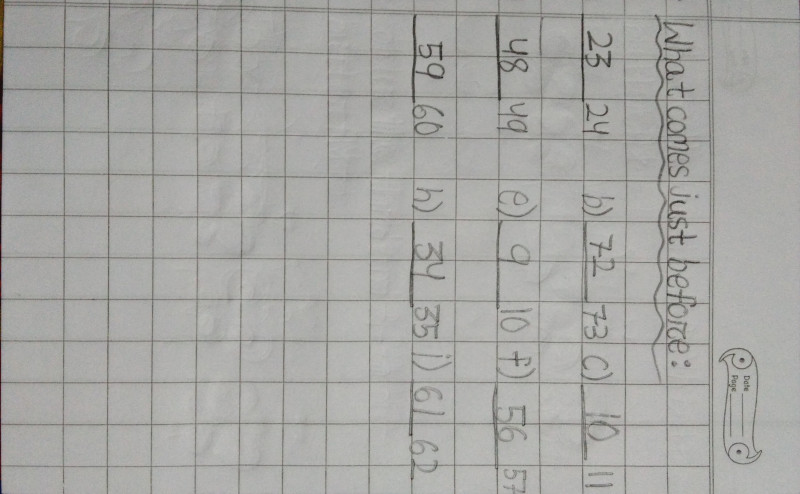 Date
Page
What comes just before:
23 24 b) 72 73 c) 10 11
48 49 e) 9 10 f) 56 57
59 60 h) 34 35 i) 61 62